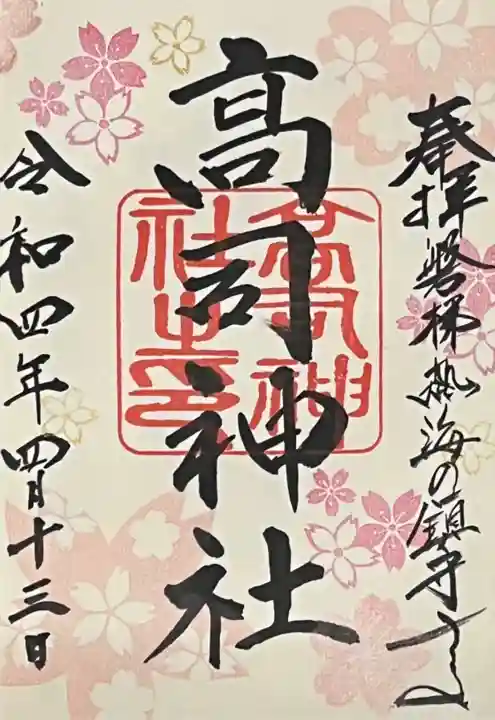 奉拝 磐梯熱海の鎮守さん
高司神社
高司神社之印
令和四年四月十三日